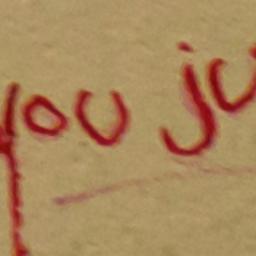 you ju